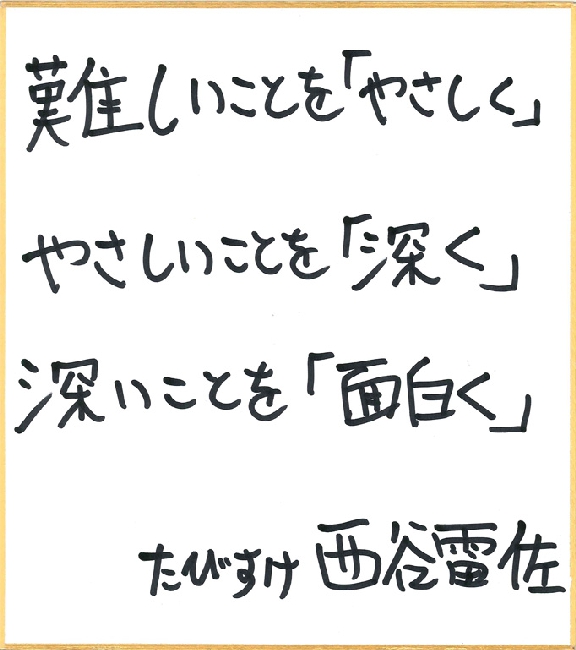 難しいことを「やさしく」
やさしいことを「深く」
深いことを「面白く」
たびすけ 西谷雷佐